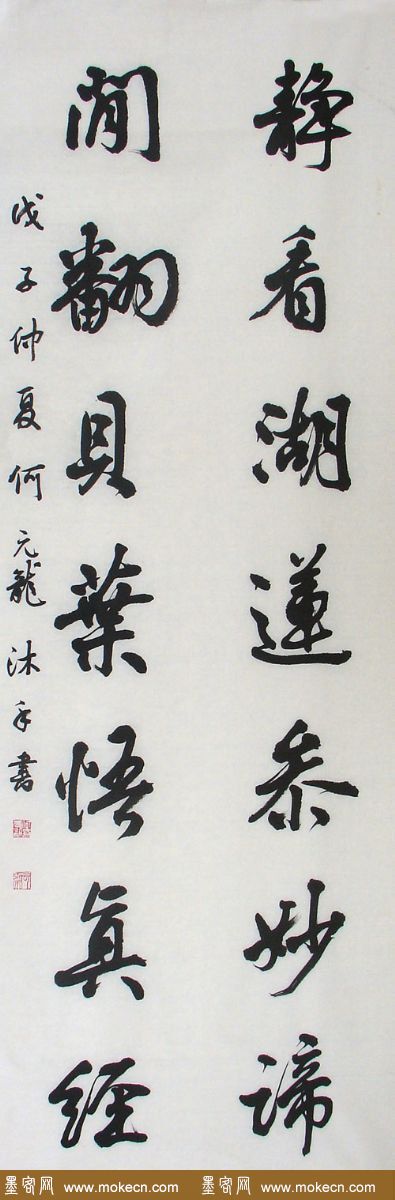 静看湖蓮叅妙諦
閒翻貝葉悟真經
戊子仲夏何元龍沐手書
墨客网 www.mokecn.com 墨客网 www.mokecn.com